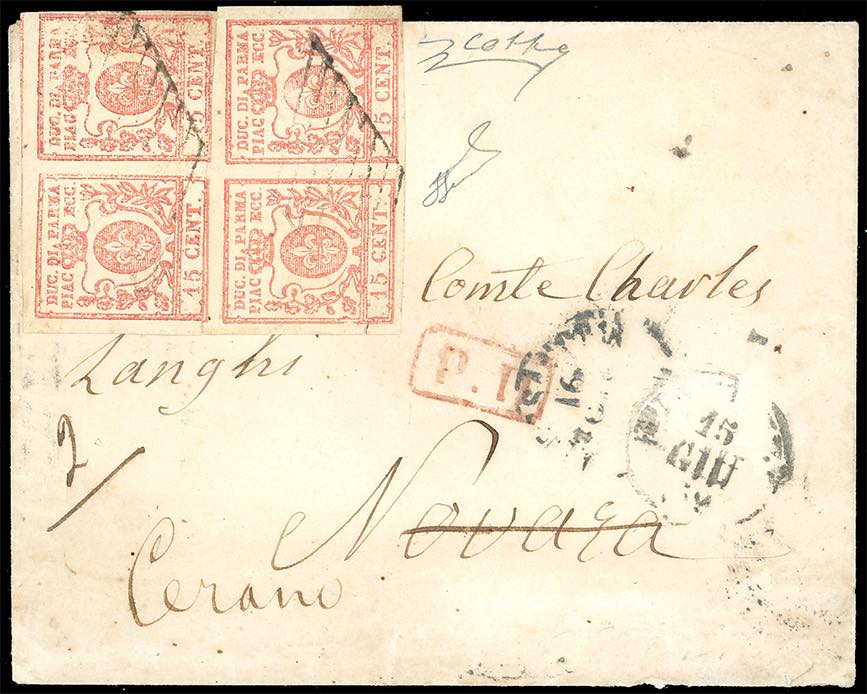 DUC. DI PARMA
PIAC ECC.
15 CENT.
DUC. DI PARMA
PIAC ECC.
15 CENT.
DUC. DI PARMA
PIAC ECC.
15 CENT.
DUC. DI PARMA
PIAC ECC.
15 CENT.
Comte Charles
Langhi
P.D
16
15
GIU
2
Novara
Cerano